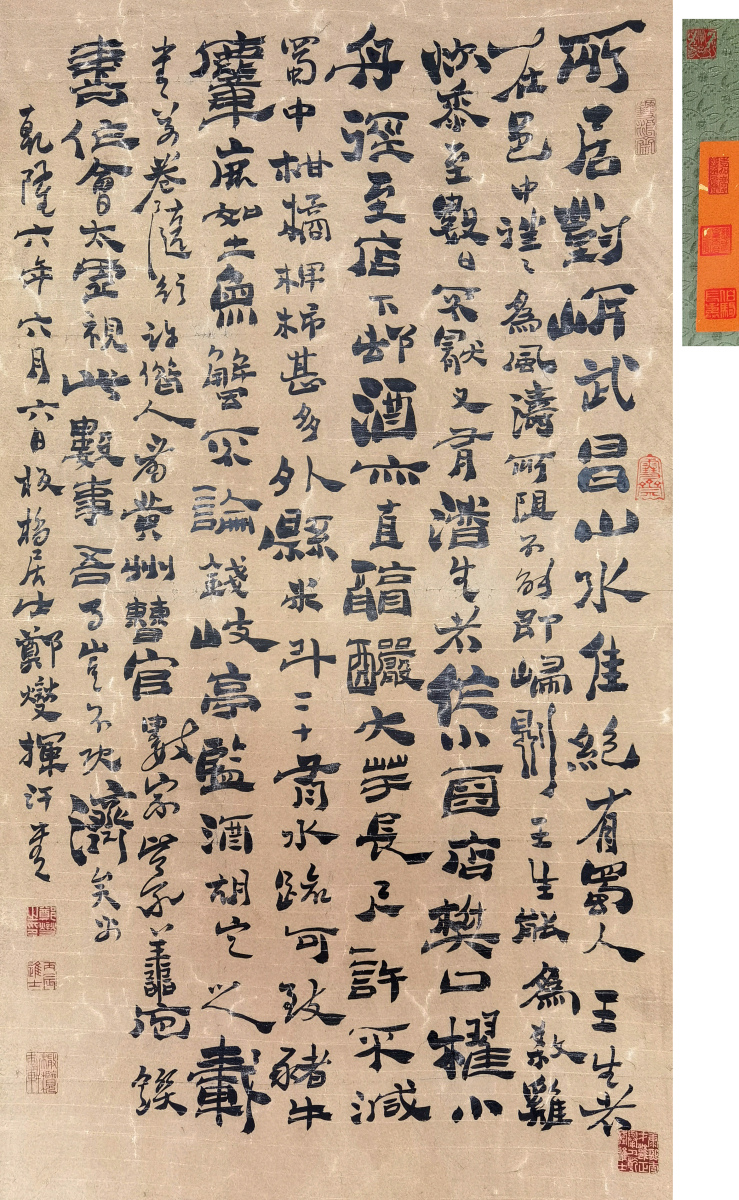 所居對岍武昌山水佳絕有蜀人王生者
在邑中往々為風濤所阻不能即歸則王生能為殺雞
炊黍至數日不厭又有潘生者作小酒店樊口櫂小
舟徑至店下邨酒亦直醇釅大芋長尺許不減
蜀中柑橘椑柿甚多外縣米斗二十有水路可致豬牛
麞鹿如土魚蟹不論錢岐亭監酒胡定之載
書萬卷隨行許借人看黃州曹官數家皆家善庖饌
喜作會太虛視此數事吾事豈不既濟矣乎
乾隆六年六月六日板橋居士鄭燮揮汗書
鄭燮之印
丙辰進士